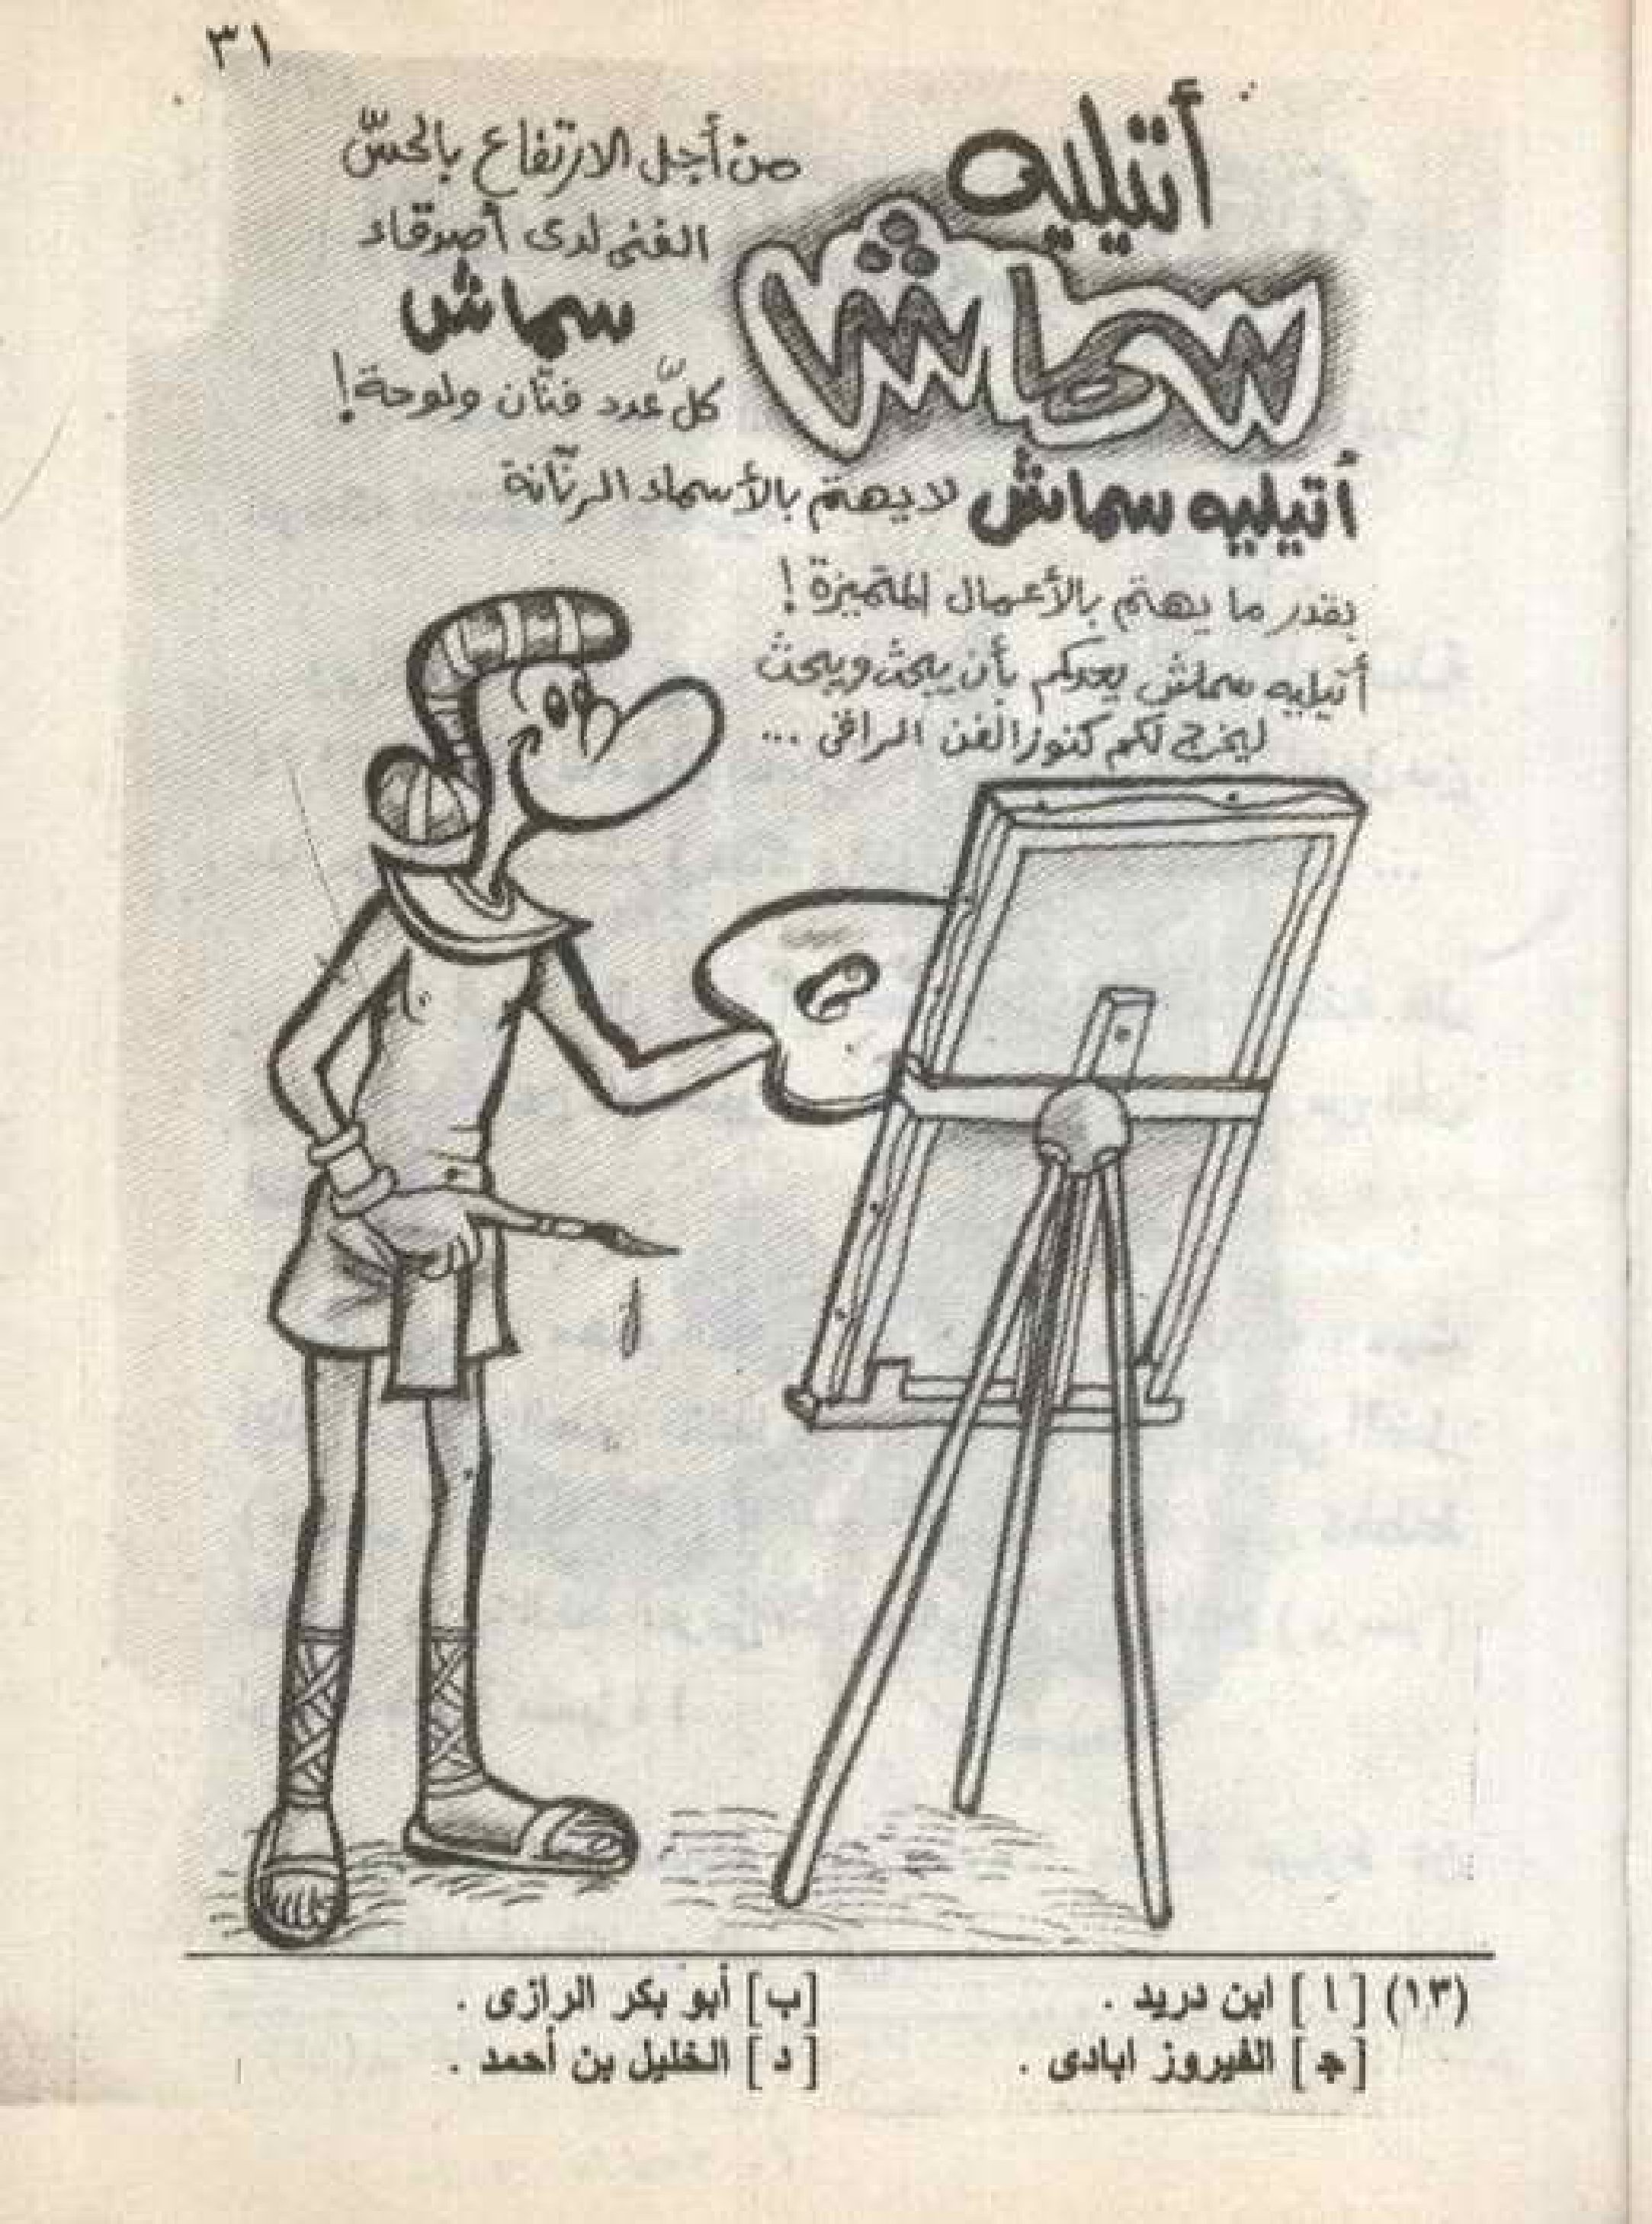 ٣١
أتيليه
سماش
من أجل الارتفاع بالحسّ
الفنى لدى أصدقاء
سماش
كلّ عدد فنّان ولوحة!
أتيليه سماش لا يهتم بالأسماء الرنّانة
بقدر ما يهتم بالأعمال المتميزة!
أتيليه سماش يعدكم بأن يبحث ويبحث
ليخرج لكم كنوز الفن الراقى ...
(١٣) [ ا ] ابن دريد . [ب] أبو بكر الرازى .
[ج] الفيروز ابادى . [ د ] الخليل بن أحمد .